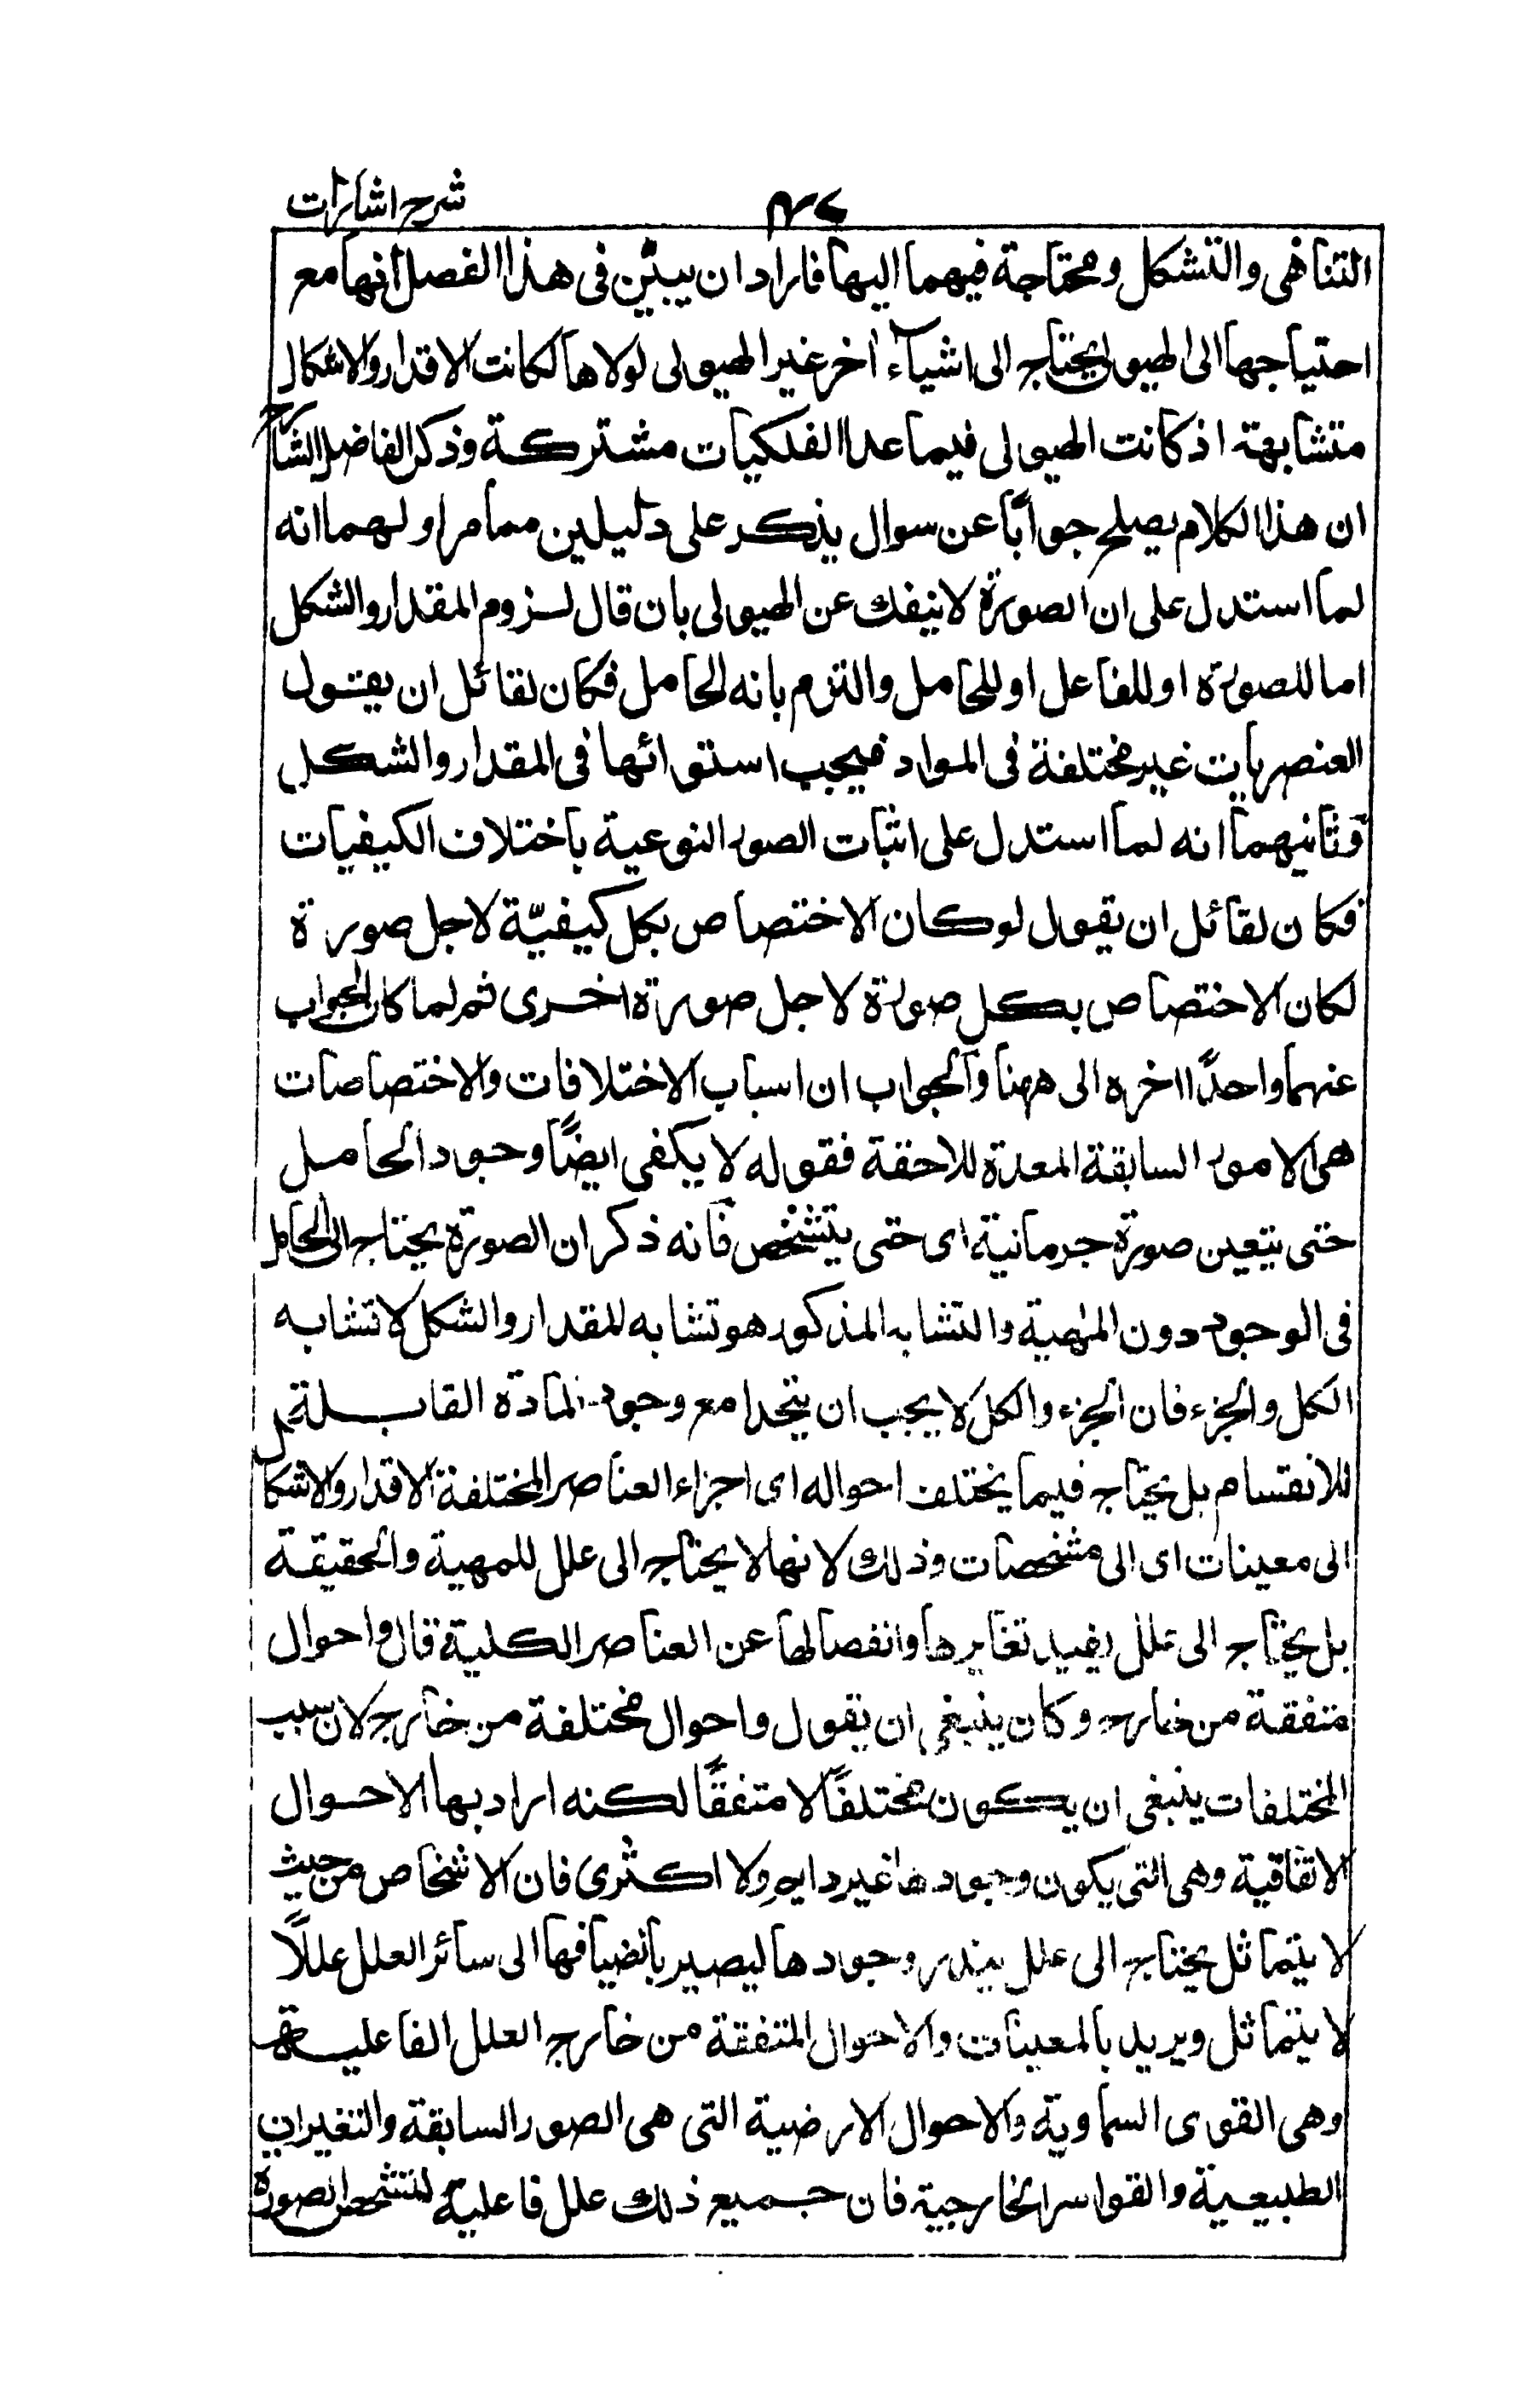 شرح اشارات
التناهى والتشكل ومحتاجة فيهما اليها فاراد ان يبيّن فى هذا الفصل انها مع
احتياجها الى الهيولى يحتاج الى اشيآء اخر غير الهيولى لولاها لكانت الاقدار والاشكال
متشابهة اذ كانت الهيولى فيما عدا الفلكيات مشتركة وذكر الفاضل الشارح
ان هذا الكلام يصلح جوابًا عن سوال يذكر على دليلين مما مر اولهما انه
لما استدل على ان الصورة لا ينفك عن الهيولى بان قال لزوم المقدار والشكل
اما للصورة او للفاعل او للحامل والتزم بانه الحامل فكان لقائل ان يقول
العنصريات غير مختلفة فى المواد فيجب استوائها فى المقدار والشكل
وثانيهما انه لما استدل على اثبات الصور النوعية باختلاف الكيفيات
فكان لقائل ان يقول لو كان الاختصاص بكل كيفيّة لاجل صورة
لكان الاختصاص بكل صورة لاجل صورة اخرى ثم لما كان الجواب
عنهما واحدًا اخره الى ههنا والجواب ان اسباب الاختلافات والاختصاصات
هى الامور السابقة المعدة للاحقة فقوله لا يكفى ايضًا وجود الحامل
حتى يتعين صورة جرمانية اى حتى يتشخص فانه ذكر ان الصورة يحتاج الى الحامل
فى الوجود دون المهية والتشابه المذكور هو تشابه للمقدار والشكل لا تشابه
الكل والجزء فان الجزء والكل لا يجب ان يتحدا مع وجود المادة القابلة
للانقسام بل يحتاج فيما يختلف احواله اى اجزاء العناصر المختلفة الاقدار والاشكال
الى معينات اى الى مشخصات وذلك لانها لا يحتاج الى علل للمهية والحقيقة
بل يحتاج الى علل يفيد تغايرها وانفصالها عن العناصر الكلية قال واحوال
متفقة من خارج وكان ينبغى ان يقول واحوال مختلفة من خارج لان سبب
المختلفات ينبغى ان يكون مختلفًا لا متفقًا لكنه اراد بها الاحوال
الاتفاقية وهى التى يكون وجودها غير دايم ولا اكثرى فان الاشخاص من حيث
لا يتماثل يحتاج الى علل يندر وجودها ليصير بانضيافها الى سائر العلل عللًا
لا يتماثل ويريد بالمعينات والاحوال المتفقة من خارج العلل الفاعلية
وهى القوى السماوية والاحوال الارضية التى هى الصور السابقة والتغيرات
الطبيعية والقواسر الخارجية فان جميع ذلك علل فاعلية لتشخص الصورة